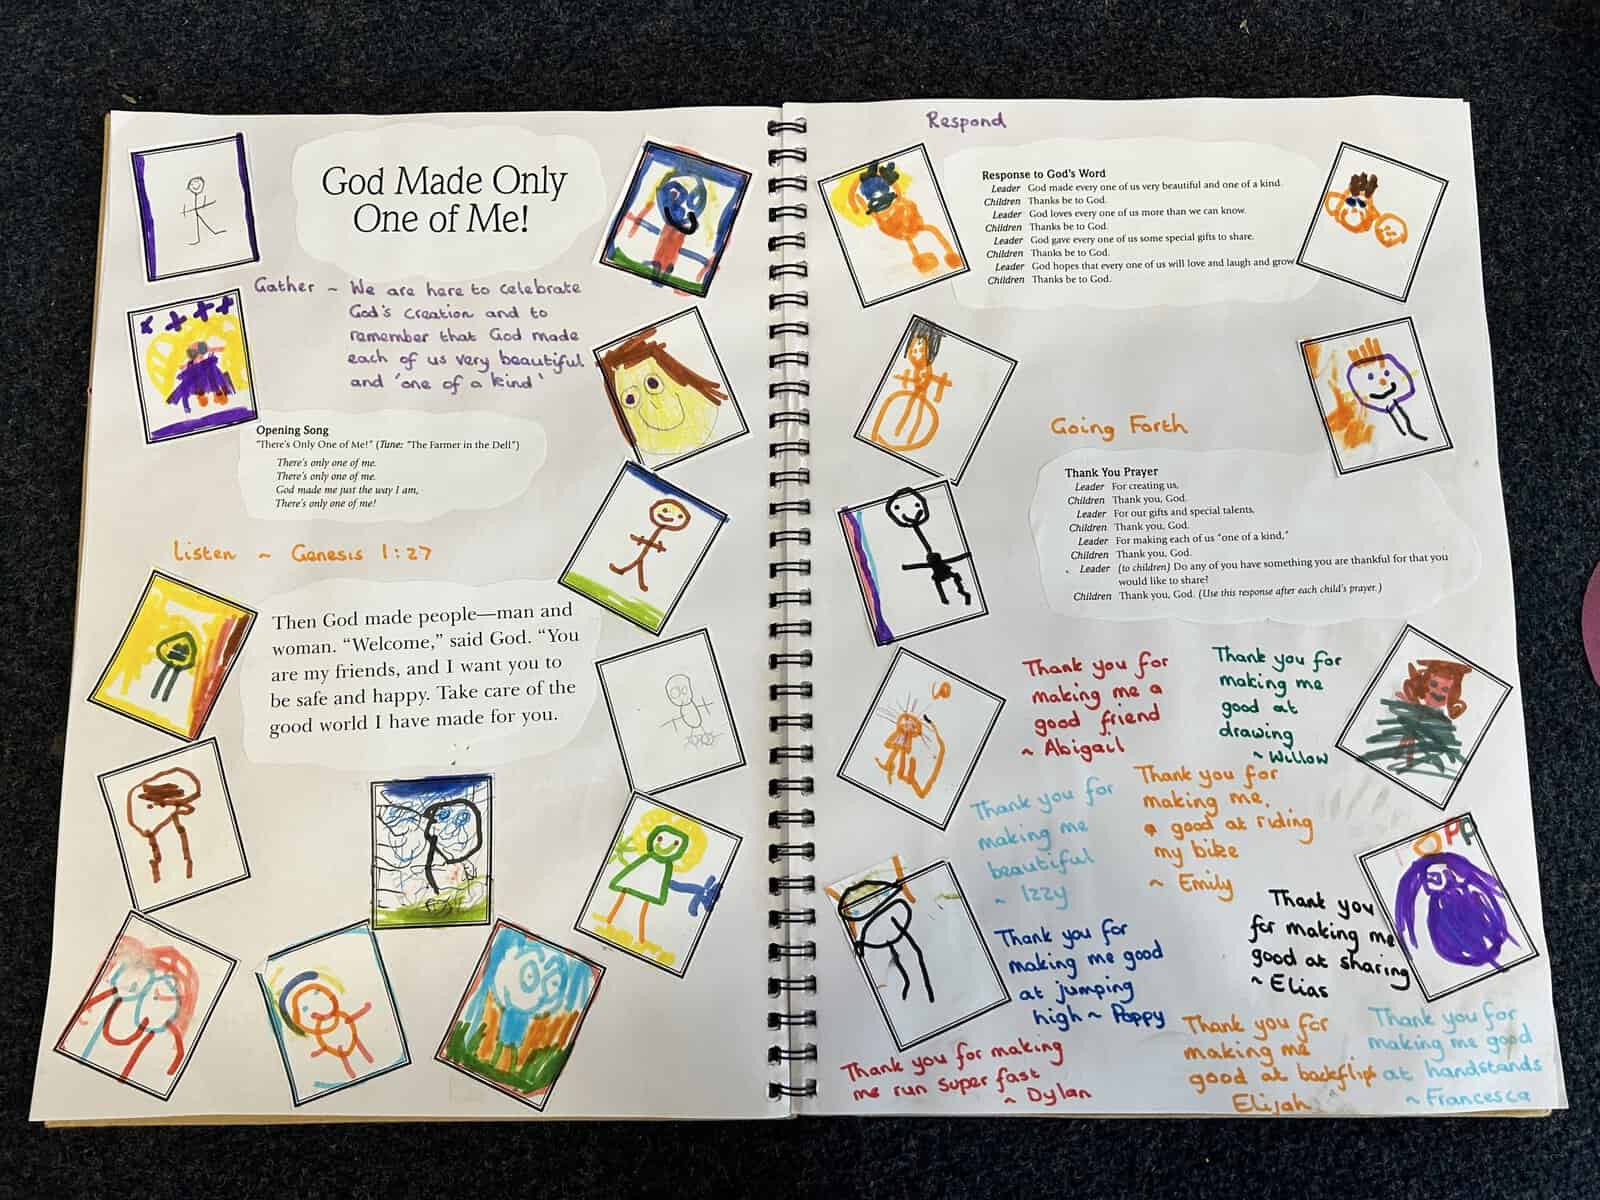 God Made Only
One of Me!
Gather ~ We are here to celebrate
God's creation and to
remember that God made
each of us very beautiful
and 'one of a kind'
Opening Song
"There's Only One of Me!" (Tune: "The Farmer in the Dell")
There's only one of me.
There's only one of me.
God made me just the way I am,
There's only one of me!
Listen ~ Genesis 1:27
Then God made people—man and
woman. "Welcome," said God. "You
are my friends, and I want you to
be safe and happy. Take care of the
good world I have made for you.
Respond
Response to God's Word
Leader God made every one of us very beautiful and one of a kind.
Children Thanks be to God.
Leader God loves every one of us more than we can know.
Children Thanks be to God.
Leader God gave every one of us some special gifts to share.
Children Thanks be to God.
Leader God hopes that every one of us will love and laugh and grow
Children Thanks be to God.
Going Forth
Thank You Prayer
Leader For creating us,
Children Thank you, God.
Leader For our gifts and special talents,
Children Thank you, God.
Leader For making each of us "one of a kind,"
Children Thank you, God.
Leader (to children) Do any of you have something you are thankful for that you
would like to share?
Children Thank you, God. (Use this response after each child's prayer.)
Thank you for
making me a
good friend
~ Abigail
Thank you for
making me
good at
drawing
~ Willow
Thank you for
making me
beautiful
~ Izzy
Thank you for
making me
good at riding
my bike
~ Emily
Thank you for
making me good
at jumping
high ~ Poppy
Thank you
for making me
good at sharing
~ Elias
Thank you for making
me run super fast
~ Dylan
Thank you for
making me
good at backflips
Elijah
Thank you for
making me good
at handstands
~ Francesca
OPP